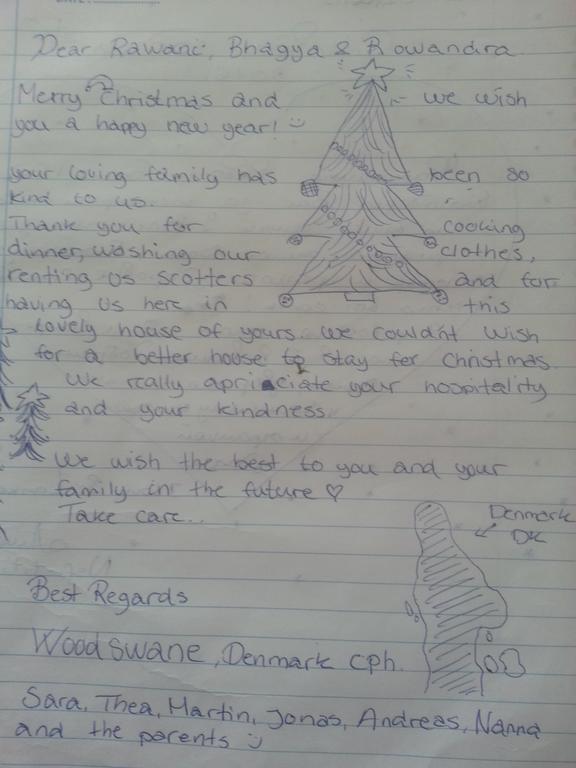 Dear Rawani, Bhagya & Rowandra
Merry Christmas and we wish
you a happy new year! :)
your loving family has been so
kind to us.
Thank you for cooking
dinner, washing our clothes,
renting us scotters and for
having us here in this
Lovely house of yours. We couldn't wish
for a better house to stay for Christmas.
We really apriciate your hospitality
and your kindness
We wish the best to you and your
family in the future ♡
Take care..
Denmark
DK
Best Regards
Woodswane, Denmark cph.
Sara, Thea, Martin, Jonas, Andreas, Nanna
and the parents :)